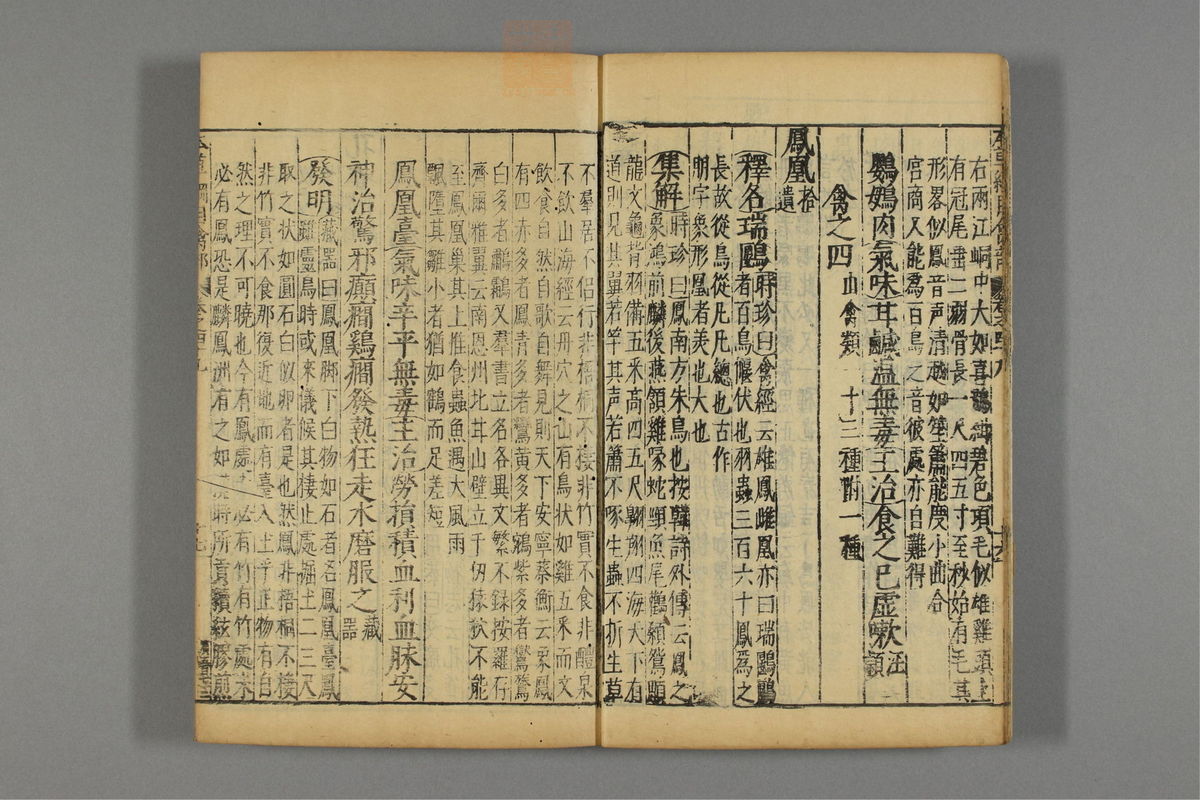 右兩江峒中大如喜鵲紺碧色項毛似雄雞頭上
有冠尾垂二弱骨長一尺四五寸至秋始有毛其
形畧似鳳音声清越如笙簫能度小曲合
宮商又能為百鳥之音彼處亦自難得
鸚䳇肉氣味甘鹹温無毒主治食之已虛嗽汪
頴
禽之四山禽類一十三種附一種
鳳凰拾
遺
釋名瑞鶠時珍曰禽經云雄鳳雌凰亦曰瑞鶠鶠
者百鳥偃伏也羽蟲三百六十鳳為之
長故從鳥從凡凡總也古作
朋字象形凰者美也大也
集解時珍曰鳳南方朱鳥也按韓詩外傳云鳳之
象鴻前麟後燕頷雞喙蛇頸魚尾鸛顙鴛顋
龍文龜背羽備五釆高四五尺翱翔四海天下有
道則見其翼若竿其声若簫不啄生蟲不折生草
不羣居不侶行非梧桐不棲非竹實不食非醴泉
不飲山海經云丹穴之山有鳥狀如雞五釆而文
飲食自然自歌自舞見則天下安寧蔡衡云象鳳
有四赤多者鳳青多者鸞黄多者鵷紫多者鸑鷟
白多者鷫鸘又羣書立名各異文繁不録按羅存
齋爾雅翼云南恩州北甘山壁立千仞猿狖不能
至鳳凰巢其上惟食蟲魚遇大風雨
飄墮其雛小者猶如鶴而足差短
鳳凰臺氣味辛平無毒主治勞損積血利血脉安
神治驚邪癲癇鷄癇發熱狂走水磨服之藏
器
發明藏器曰鳳凰脚下白物如石者名鳳凰臺鳳
雖靈鳥時或來儀候其棲止處掘土二三尺
取之狀如圓石白似卵者是也然鳳非梧桐不棲
非竹實不食那復近地而有臺入土乎正物有自
然之理不可曉也今有鳳處未必有竹有竹處未
必有鳳恐是麟鳳洲有之如漢時所貢續絃膠煎